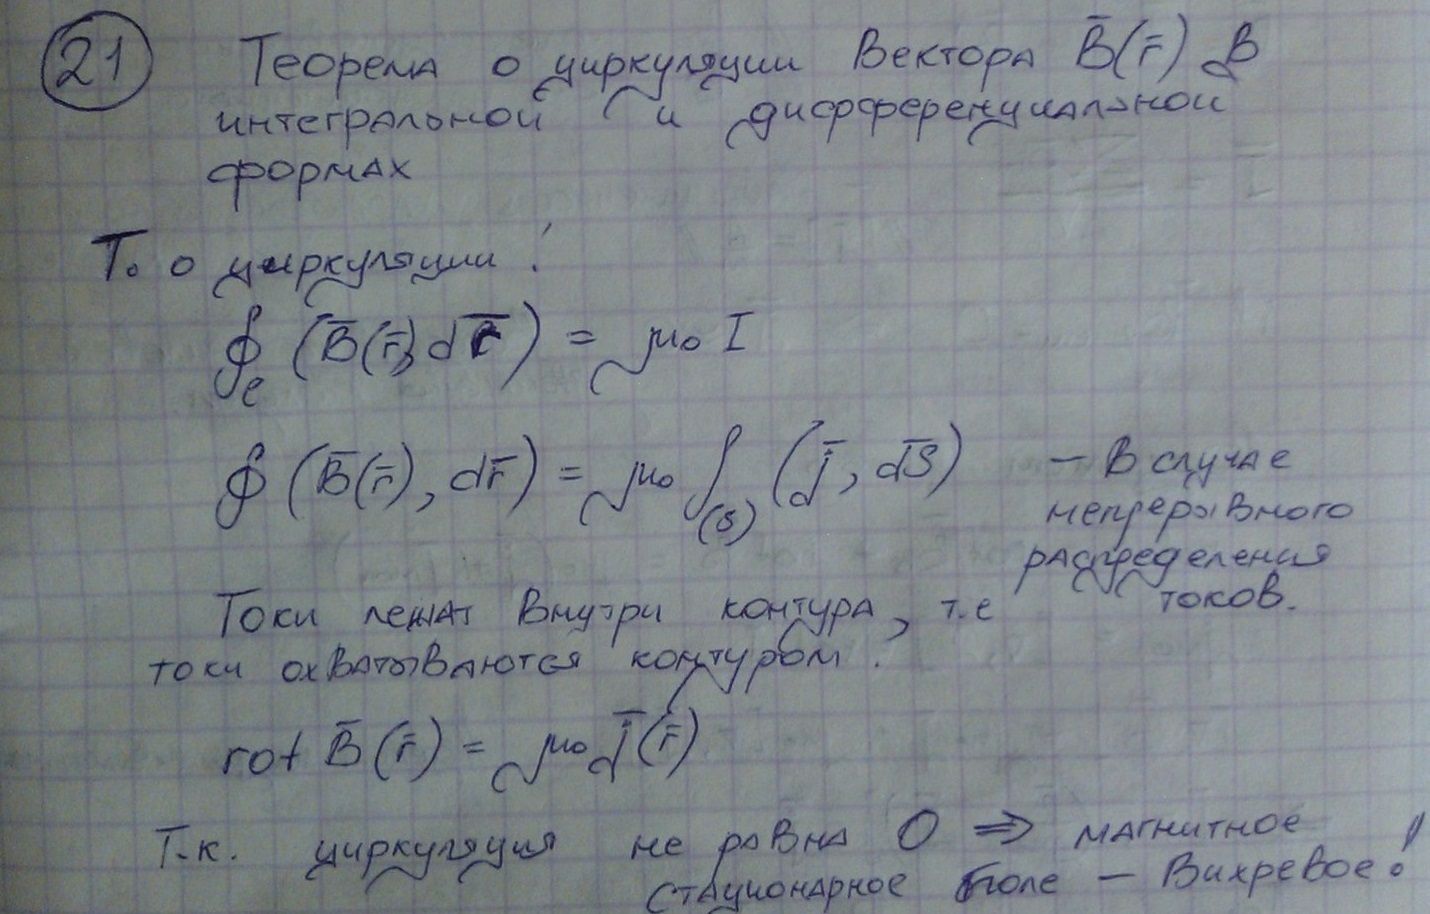 21 Теорема о циркуляции вектора B̄(r̄) в
интегральной и дифференциальной
формах
Т. о циркуляции:
∮ℓ (B̄(r̄), dr̄) = μ₀ I
∮ (B̄(r̄), dr̄) = μ₀ ∫(S) (j̄, dS̄) – в случае
непрерывного
распределения
токов.
Токи лежат внутри контура, т.е
токи охватываются контуром.
rot B̄(r̄) = μ₀ j̄(r̄)
Т.к. циркуляция не равна 0 ⇒ магнитное
стационарное поле – вихревое!